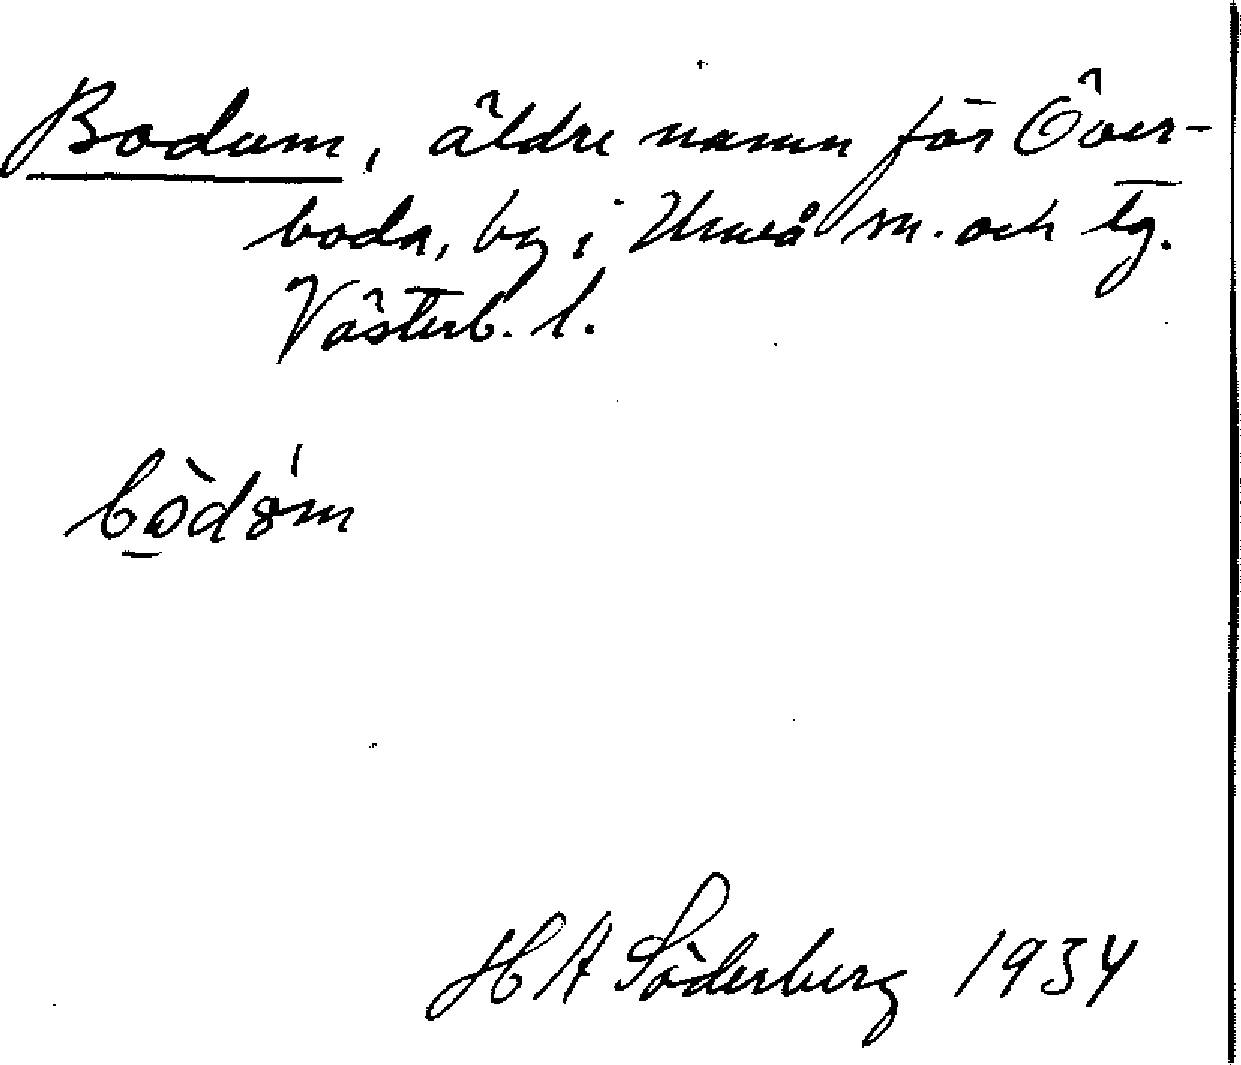 Bodum, äldre namn för Över-
boda, by i Umeå sn. och tg.
Västerb. l.
bò̲dꝏ́m
H A Söderberg 1934